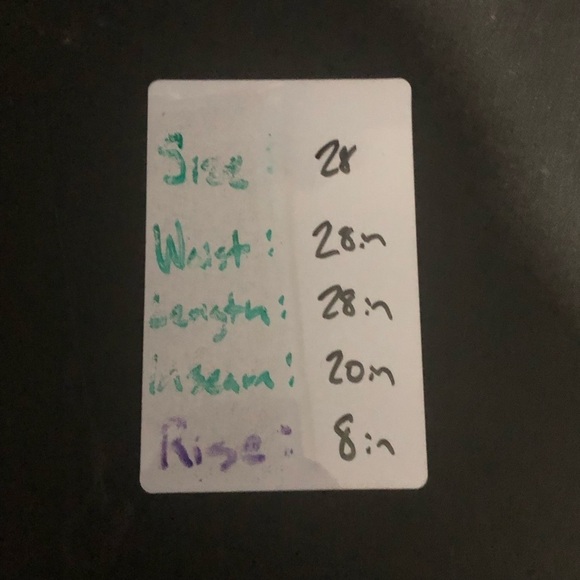 Size : 28
Waist : 28in
Length : 28in
inseam : 20in
Rise : 8in